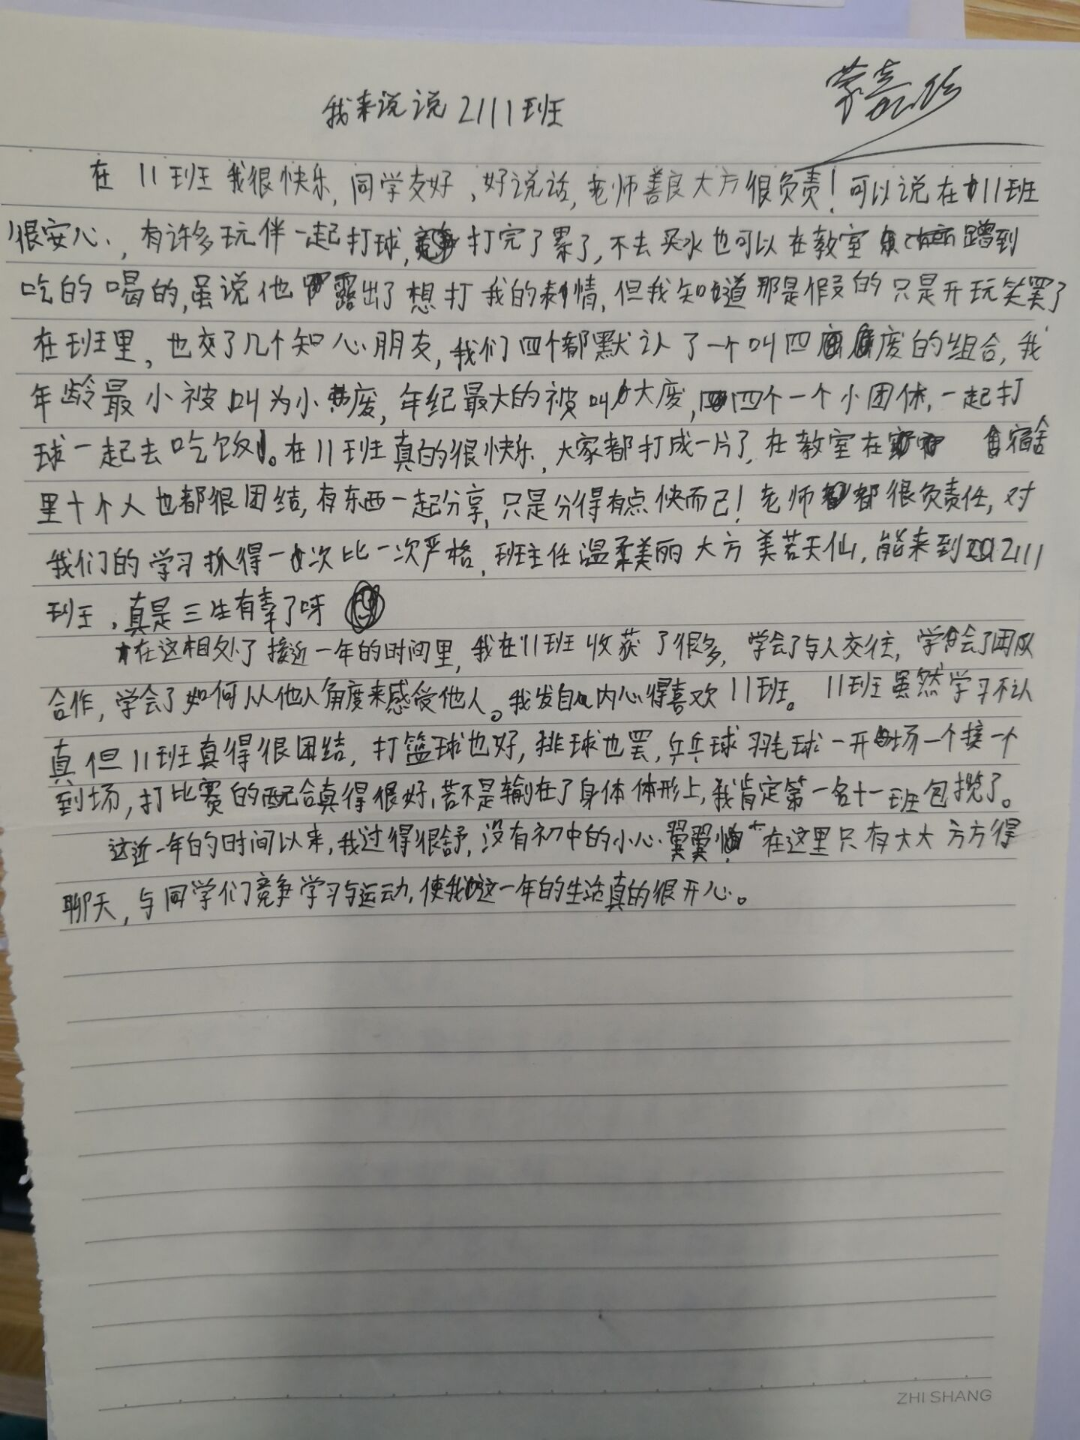 我来说说2111班
蒙
在11班我很快乐,同学友好,好说话,老师善良大方很负责!可以说在11班
很安心,有许多玩伴一起打球,打完了累了,不去买水也可以在教室蹭到
吃的喝的,虽说他露出了想打我的表情,但我知道那是假的只是开玩笑罢了
在班里,也交了几个知心朋友,我们四个都默认了一个叫四废的组合,我
年龄最小被叫为小废,年纪最大的被叫大废,四个一个小团体,一起打
球一起去吃饭。在11班真的很快乐,大家都打成一片了,在教室在宿舍
里十个人也都很团结,有东西一起分享,只是分得有点快而已!老师都很负责任,对
我们的学习抓得一次比一次严格,班主任温柔美丽大方美若天仙,能来到2111
班,真是三生有幸了呀
在这相处了接近一年的时间里,我在11班收获了很多,学会了与人交往,学会了团队
合作,学会了如何从他人角度来感受他人。我发自内心得喜欢11班。11班虽然学习不认
真但11班真得很团结,打篮球也好,排球也罢,乒乓球羽毛球一开场一个接一个
到场,打比赛的配合真得很好,若不是输在了身体体形上,我肯定第一名十一班包揽了。
这近一年的时间以来,我过得很舒,没有初中的小心翼翼 在这里只有大大方方得
聊天,与同学们竞争学习与运动,使我这一年的生活真的很开心。
ZHI SHANG